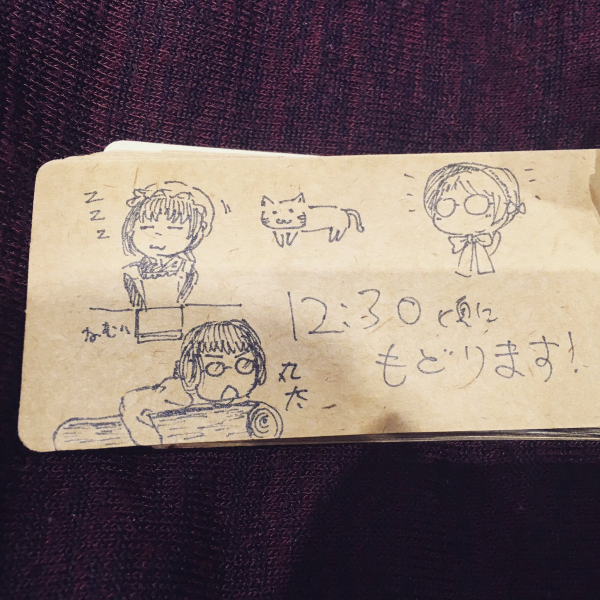 z
z
z
12:30頃に
もどります!
ねむい
丸
太